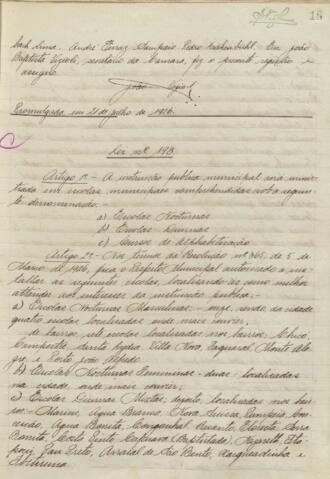 18
André Ferraz Sampaio. Pedro Krahenbuhl. Eu João
Baptista Vizioli, secretario da Camara, fiz o presente registro e
assigno.
João Vizioli
Promulgada em 21 de julho de 1926.
Lei nº 193.
Artigo 1º - A instrucção publica municipal será minis-
trada em escolas municipaes comprehendidas sob a seguin-
te denominação:-
a) Escolas Nocturnas
b) Escolas Diurnas
c) Cursos de Alphabetização
Artigo 2º - Nos termos da Resolução nº 365, de 5 de
Março de 1926, fica o Prefeito Municipal autorizado a ins-
tallar as seguintes escolas, localisando-as como melhor
attender aos interesses da instrucção publica:-
a) Escolas Nocturnas Masculinas:- onze, sendo da cidade
quatro escolas localisadas onde mais convier,
de bairros, sete escolas localisadas nos bairros: Chicó,
Campestre, Santa Lydia, Villa Nova, Taquaral, Monte Ale-
gre, e Porto João Alfredo.
b) Escolas Nocturnas Femininas - duas localisadas
na cidade, onde mais convier,
c) Escolas Diurnas Mixtas, localisadas nos bair-
ros:- Marins, Agua Branca, Nova Suissa, Campeio, Con-
ceição, Agua Bonita, Congonhal, Floresta, Serra
Bonita, Corta Vento, Capuava, Nazareth, Ita-
pocu, Pau Preto, Arraial de São Bento, Xarqueadinha e